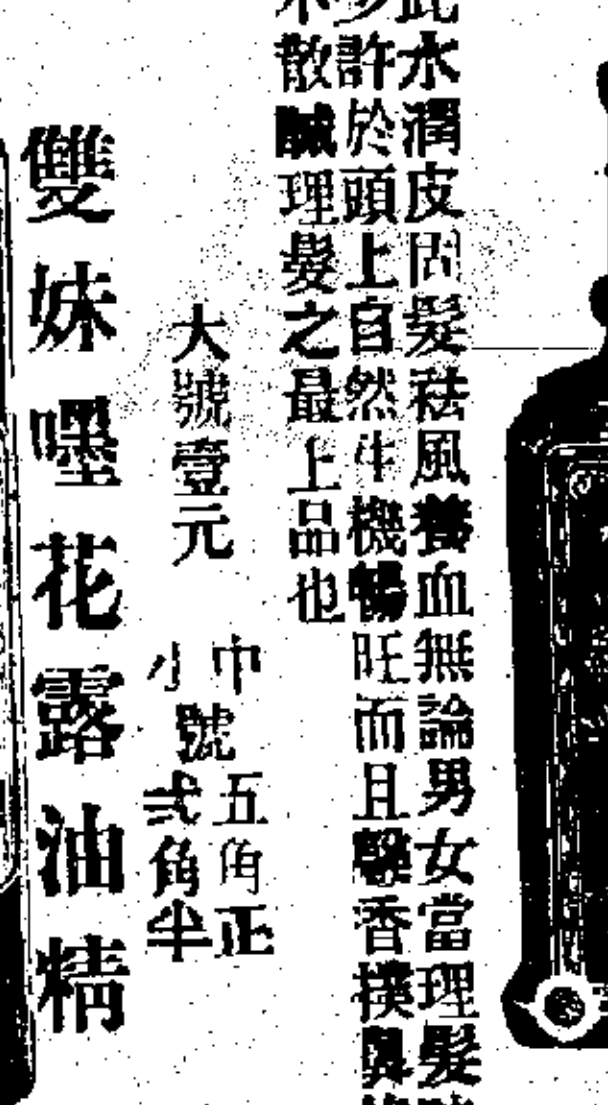 此水潤皮固髮祛風養血無論男女當理髮
少許於頭上自然生機暢旺而且馨香撲鼻
不散誠理髮之最上品也
大號壹元
中號五角正
小號弍角半
雙妹嚜花露油精